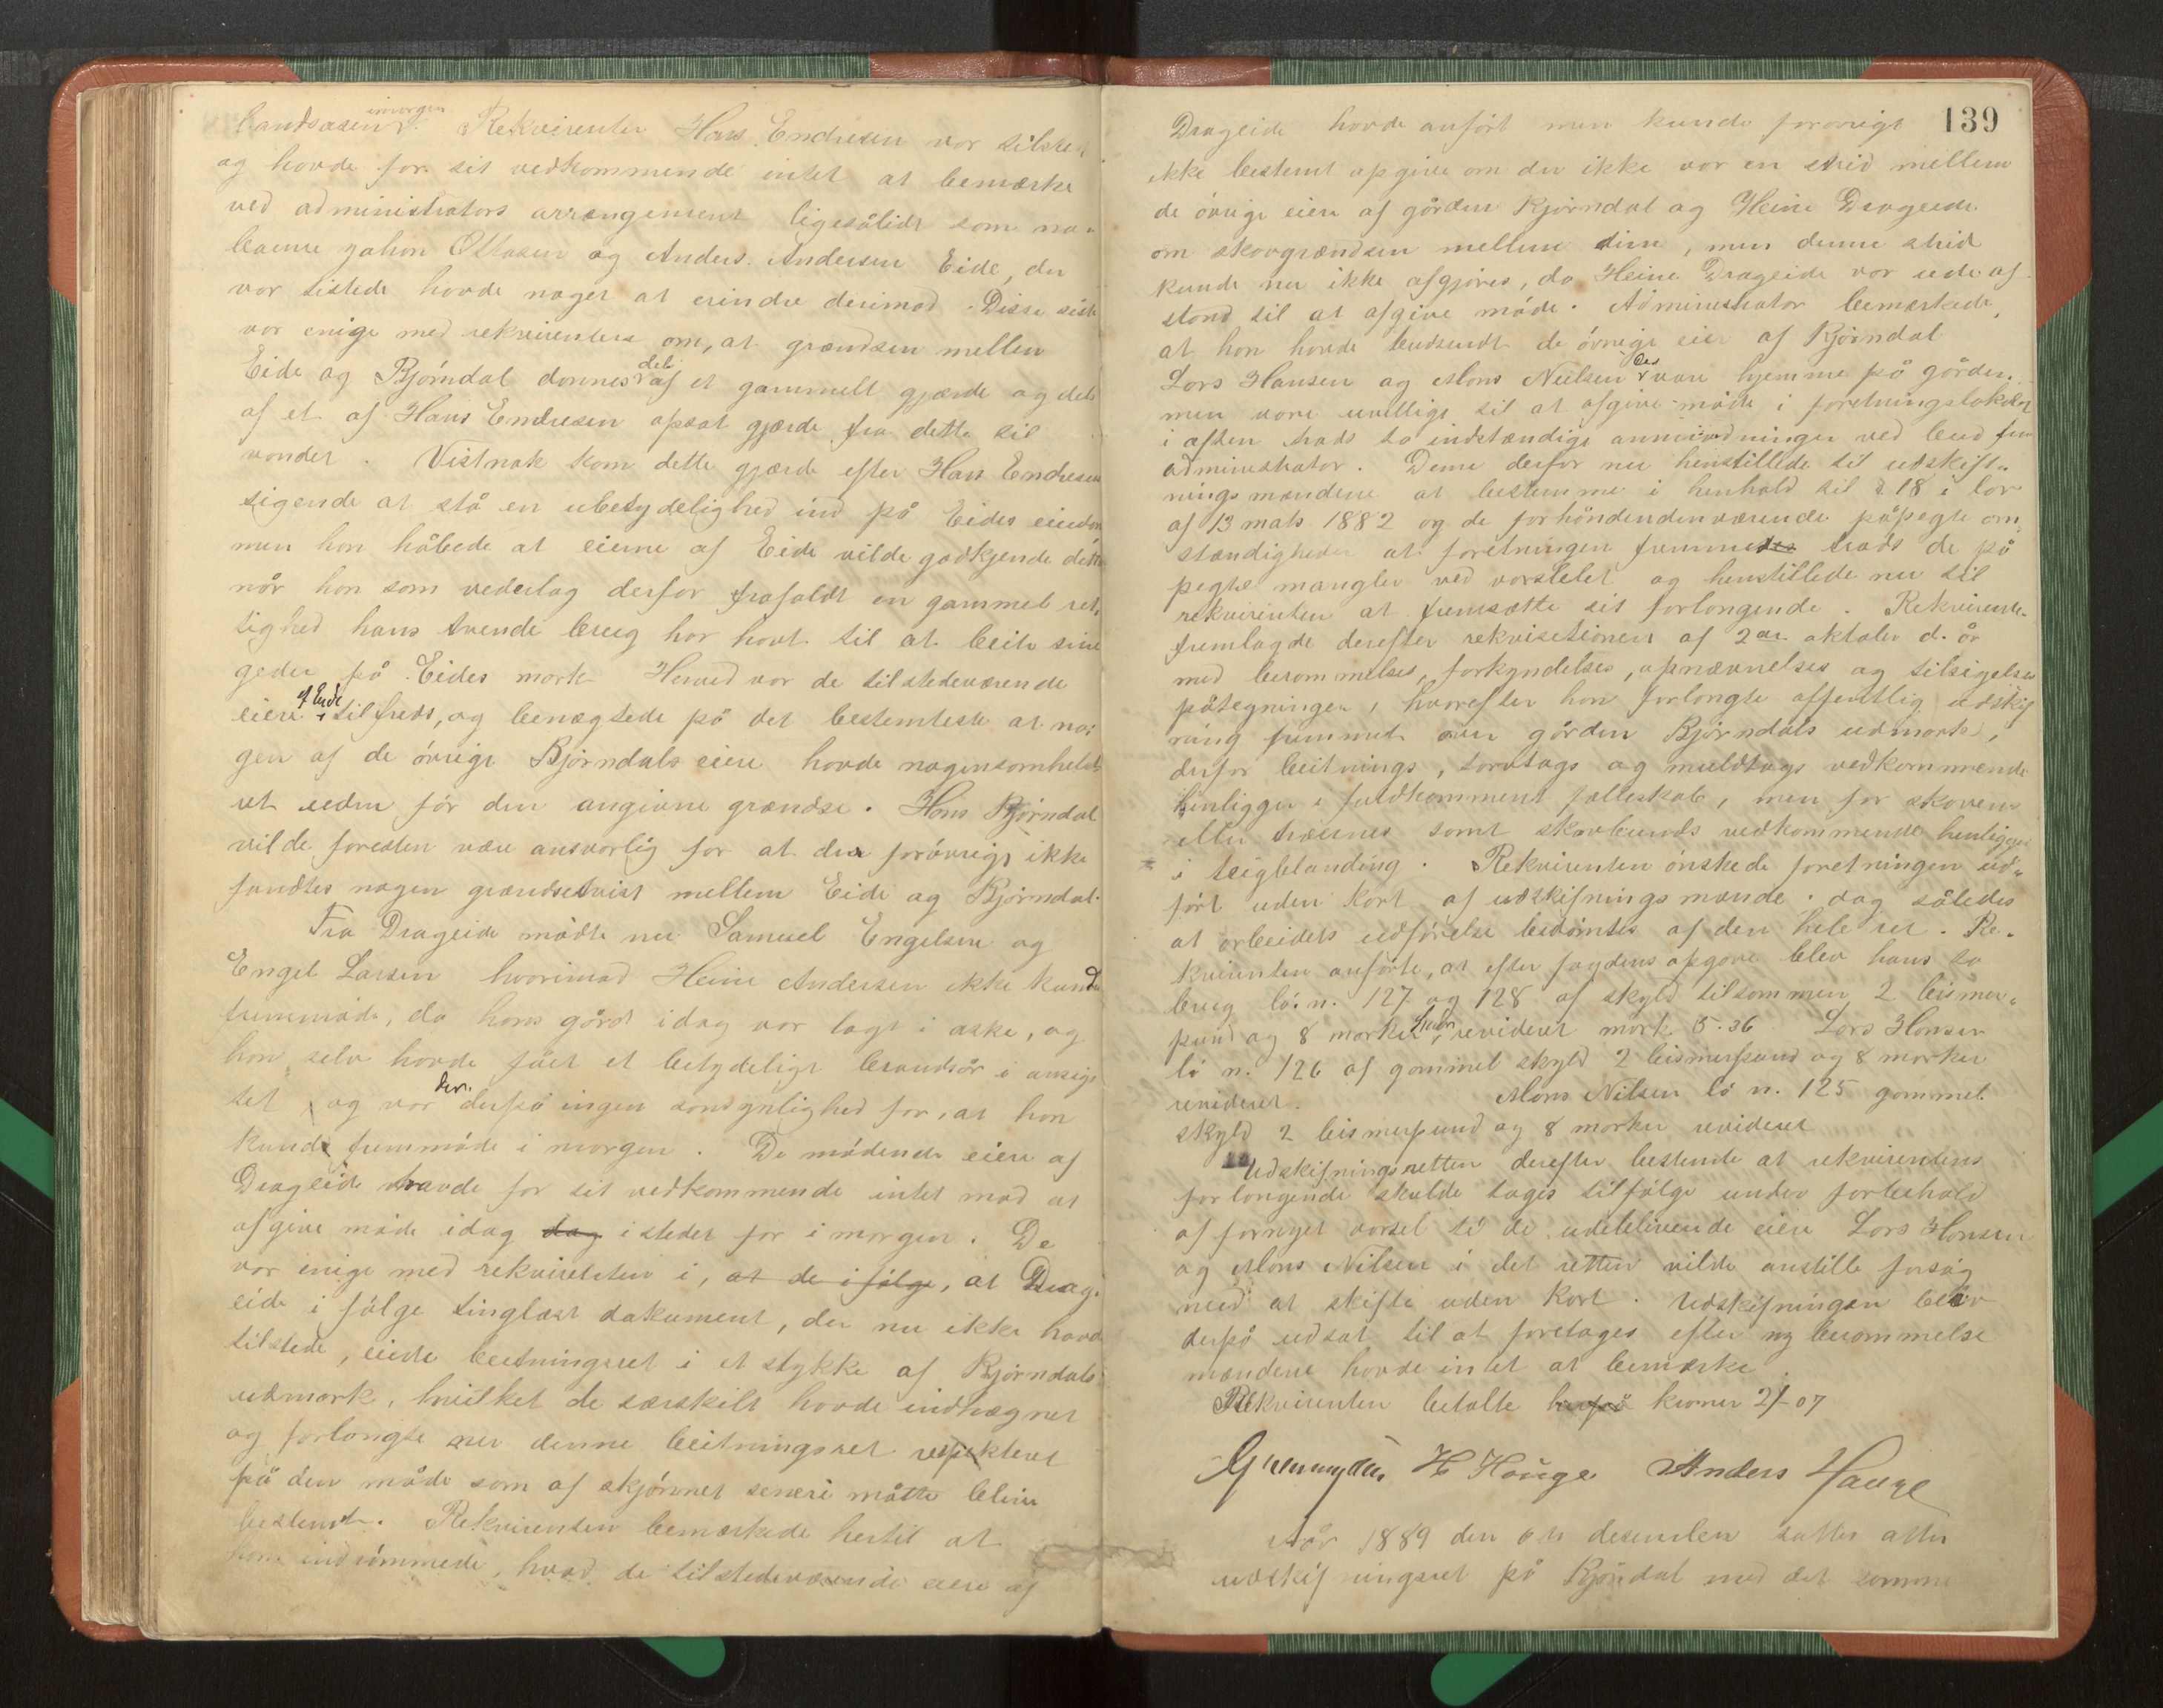 imorgen
landsasen. Rekvirenten Hans Endresen var tilsted
og havde for sit vedkommende intet at bemærke
ved administrators arrangement ligesålidt som na-
boerne Johan Ottosen og Anders Andersen Eide, der
var tistede havde noget at erindre derimod. Disse siste
var enige med rekvirenten om, at grændsen mellen
Eide og Bjørndal dannes dels af et gammelt gjærde og dels
af et af Hans Endresen opsat gjærde fra dette til
vandet. Vistnok kom dette gjærde efter Hans Endresens
sigende at stå en ubetydelighed ind på Eides eiendom
men han håbede at eierne af Eide vilde godkjende dette
når han som vederlag derfor frafaldt en gammel ret-
tighed hans tvende brug har havt til at beite sine
geder på Eides mark. Herved var de tilstedeværende
eiere af Eide tilfreds, og benægtede på det bestemteste at no-
gen af de øvrige Bjørndals eiere havde nogensomhelst
ret uden for den angivne grændse. Hans Bjørndal
vilde foresten være ansvarlig for at der forøvrigt ikke
fandtes nogen grændsetvist mellem Eide og Bjørndal.
Fra Drageide mødte nu Samuel Engelsen og
Engel Larsen hvorimod Heine Andersen ikke kunde
fremmøde, da hans gård idag var lagt i aske, og
han selv havde fået et betydeligt brandsår i ansig-
tet og var der derpå ingen sansynlighed for, at han
kunde fremmøde i morgen. De mødende eiere af
Drageide havde for sit vedkommende intet mod at
afgive møde idag dag istedet for i morgen. De
var enige med rekvirenten i, at de ifølge, at Drag-
eide i følge tinglæst dokument, der nu ikke havdes
tilstede, eiede beitningsret i et stykke af Bjørndals
udmark, hvilket de særskilt havde indhægnet
og forlangte nu denne beitningsret respekteret
på den måde som af skjønnet senere måtte blive
bestemt. Rekvirenten bemærkede hertil at
han indrømmede, hvad de tilstedeværende eiere af
139
Drageide havde anført men kunde forøvrigt
ikke bestemt opgive om der ikke var en strid mellem
de øvrige eiere af gården Bjørndal og Heine Drageide
om skovgrændsen mellem dem, men denne strid
kunde nu ikke afgjøres, da Heine Drageide var ude af
stand til at afgive møde. Administrator bemærkede,
at han havde budsendt de øvrige eier af Bjørndal
Lars Hansen og Mons Nielsen der vare hjemme på gården,
men vare uvillige til at afgive møde i foretningslokalet
i aften trods to indstændige anmodninger ved bud fra
administrator. Denne derfor nu henstillede til udskift-
ningsmændene at bestemme i henhold til § 18 i lov
af 13 mats 1882 og de forhåndendenværende påpegte om-
stændigheder at foretningen fremmedes trods de på
pegte mangler ved varslelet og henstillede nu til
rekvirenten at fremsætte sit forlangende. Rekvirenten
fremlagde derefter rekvisitionen af 2den oktober d. år
med berammelses, forkyndelses, opnævnelses og tilsigelses
påtegninger, hvorefter han forlangte offentlig udskif
ning fremmet over gården Bjørndals udmark,
derfor beitnings, torvtags og muldtags vedkommende
henligger i fuldkomment fælleskab, men for skovens
eller træernes samt skovbunds vedkommende henligger
i teigblanding. Rekvirenten ønskede foretningen ud-
ført uden kart af udskifningsmænde. dog således
at arbeidets udførelse bedømtes af den hele ret. Re-
kvirenten anførte, at efter fogdens opgave blev hans to
brug lø: n. 127 og 128 af skyld tilsommen 2 bismer-
pund og 8 marker revideret mark 5.36 Lars Hansen
lø n. 126 af gammel skyld 2 bismerpund og 8 marker
revideret. Mons Nilsen lø n. 125 gammel
skyld 2 bismerpund og 8 marker revideret
Udskifningsretten derefter bestemte at rekvirentens
forlangende skulde tages tilfølge under forbehold
af fornyet varsel til de udeblivende eiere Lars Hansen
og Mons Nilsen i det retten vilde anstille forsøg
med at skifte uden kart. Udskifningen blev
derpå udsat til at foretages efter ny berammelse
mændene havde intet at bemærke.
Rekvirenten betalte herpå kroner 21-07
H Hauge Anders Hauge
Aar 1889 den 6te desember sattes atter
udskifningsret på Bjørndal med det samme